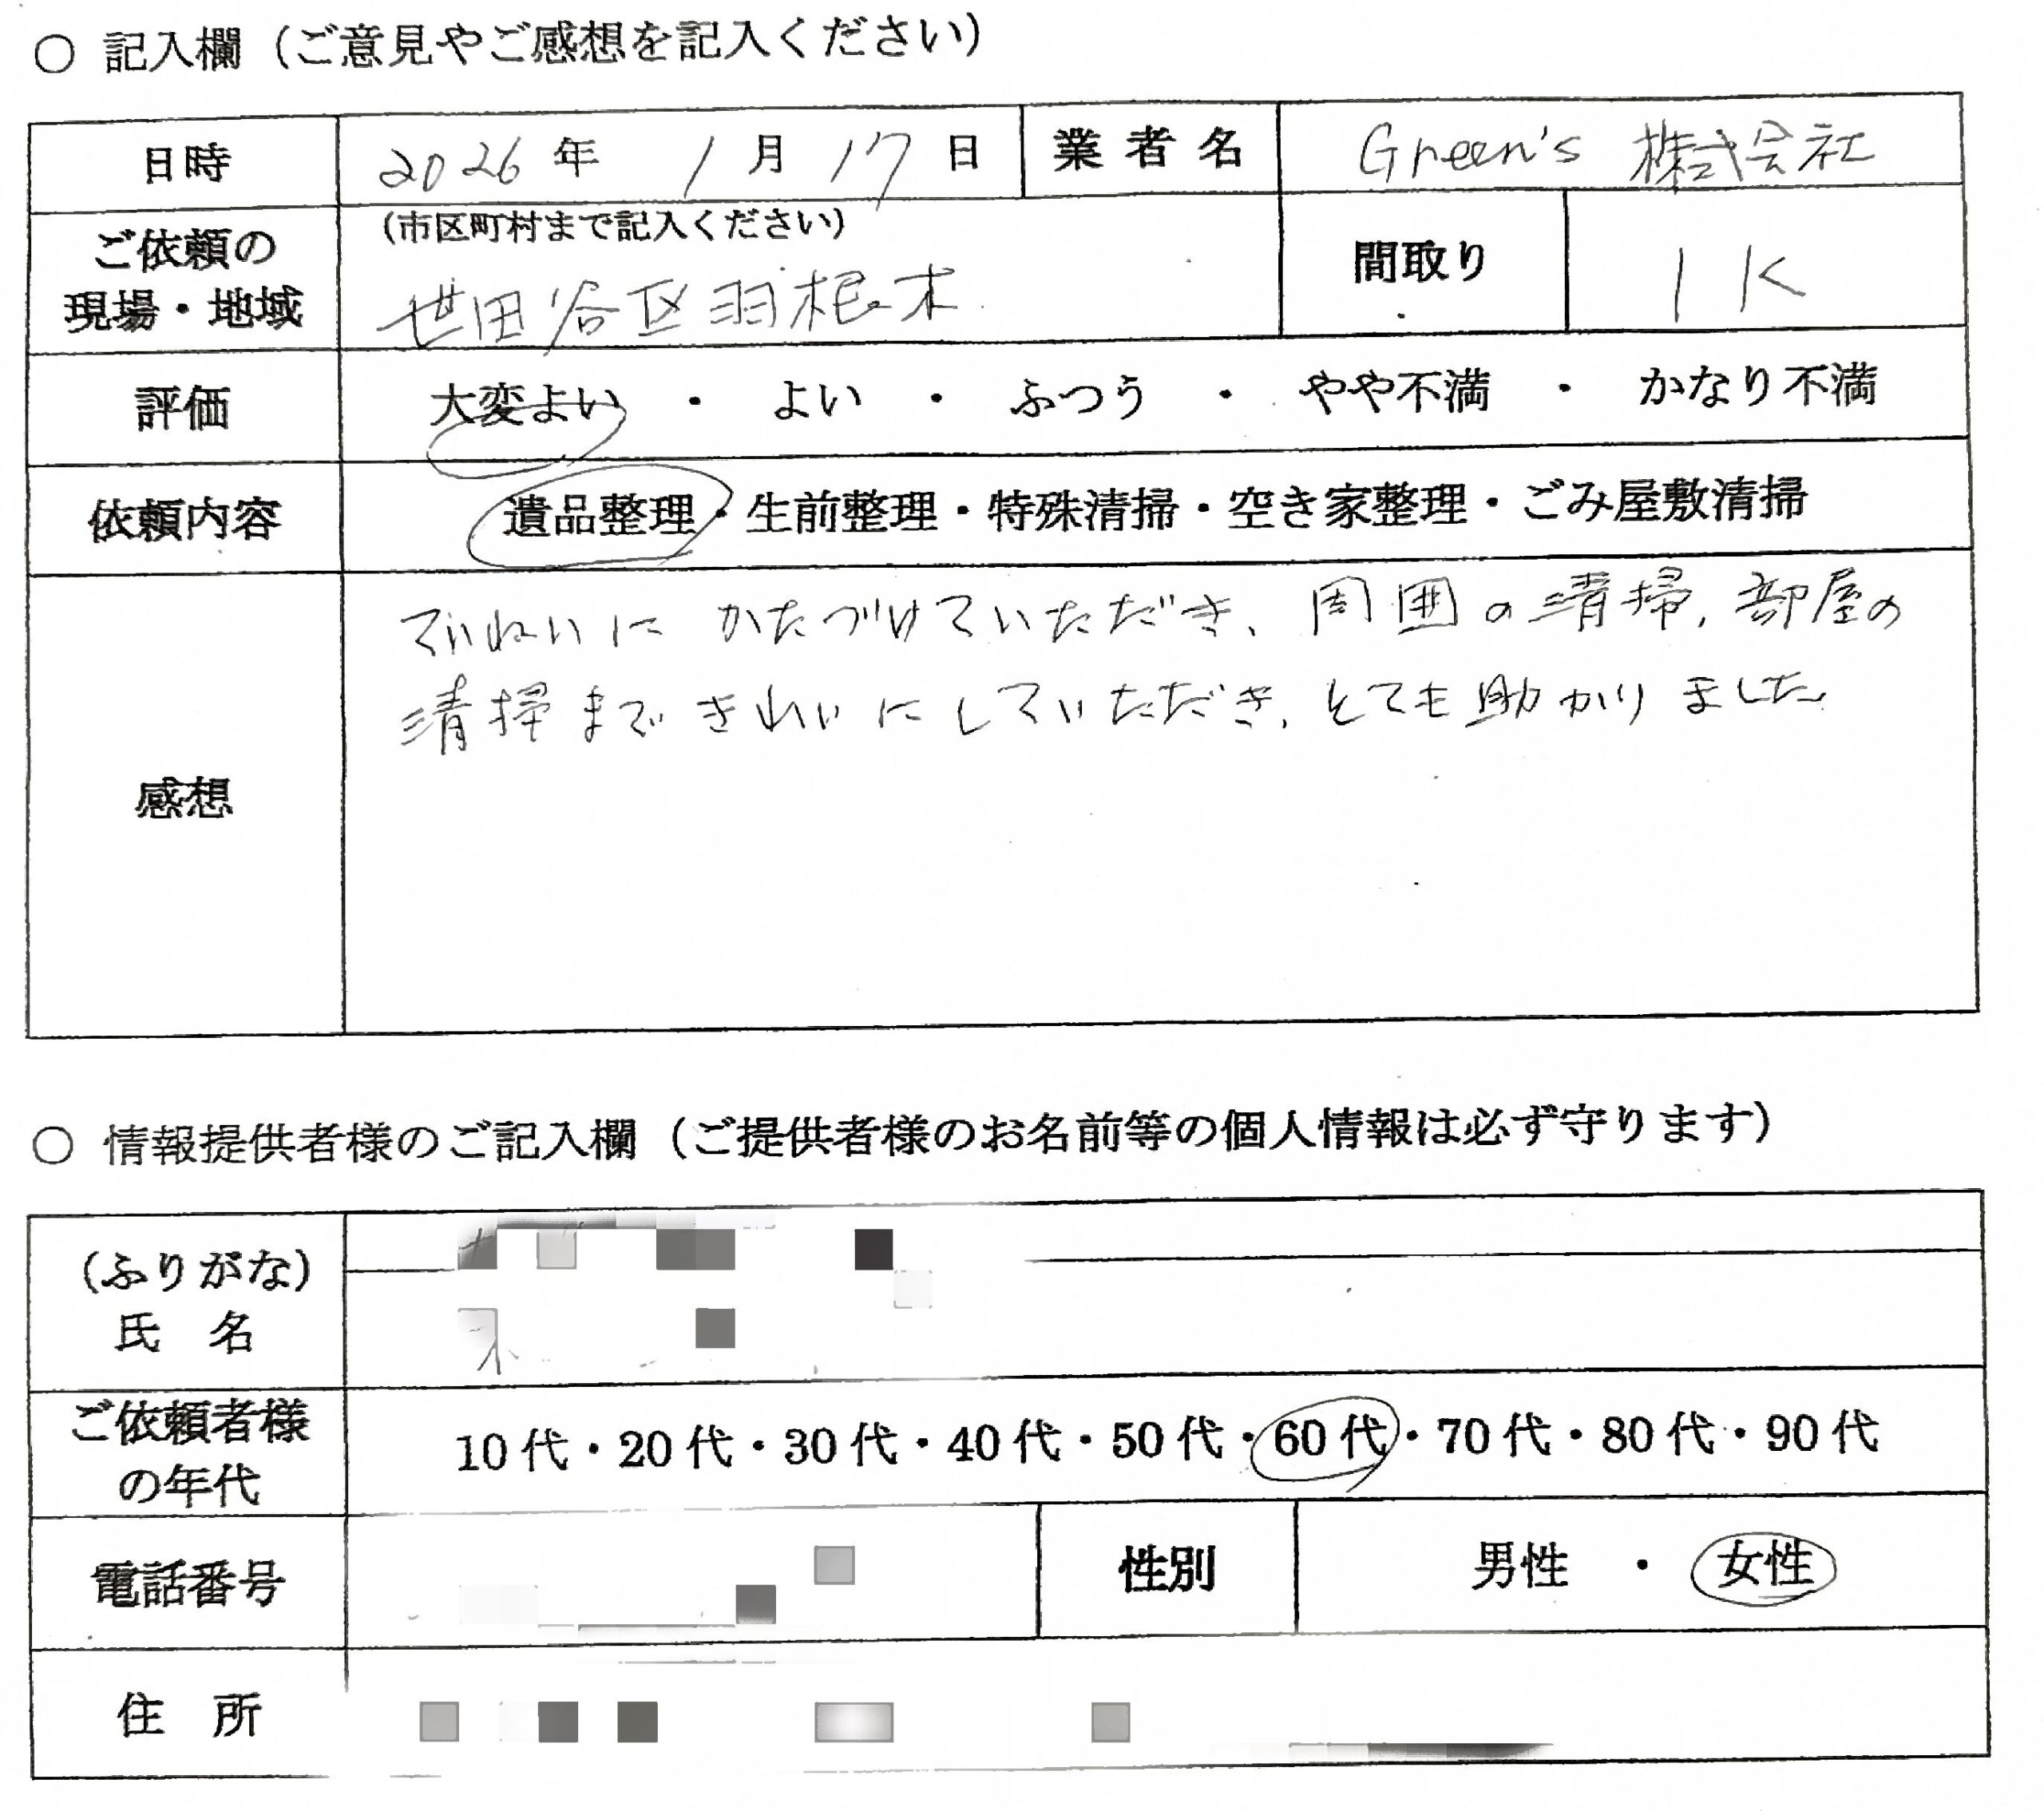 ○ 記入欄（ご意見やご感想を記入ください）
日時 2026年 1月 17日 業者名 Green's 株式会社
ご依頼の現場・地域 （市区町村まで記入ください） 世田谷区羽根木 間取り 1K
評価 大変よい ・ よい ・ ふつう ・ やや不満 ・ かなり不満
依頼内容 遺品整理・生前整理・特殊清掃・空き家整理・ごみ屋敷清掃
感想
ていねいに かたづけていただき、周囲の清掃、部屋の
清掃まで きれいにしていただき、とても助かりました
○ 情報提供者様のご記入欄（ご提供者様のお名前等の個人情報は必ず守ります）
（ふりがな）
氏 名
ご依頼者様の年代 10代・20代・30代・40代・50代・60代・70代・80代・90代
電話番号 性別 男性 ・ 女性
住 所